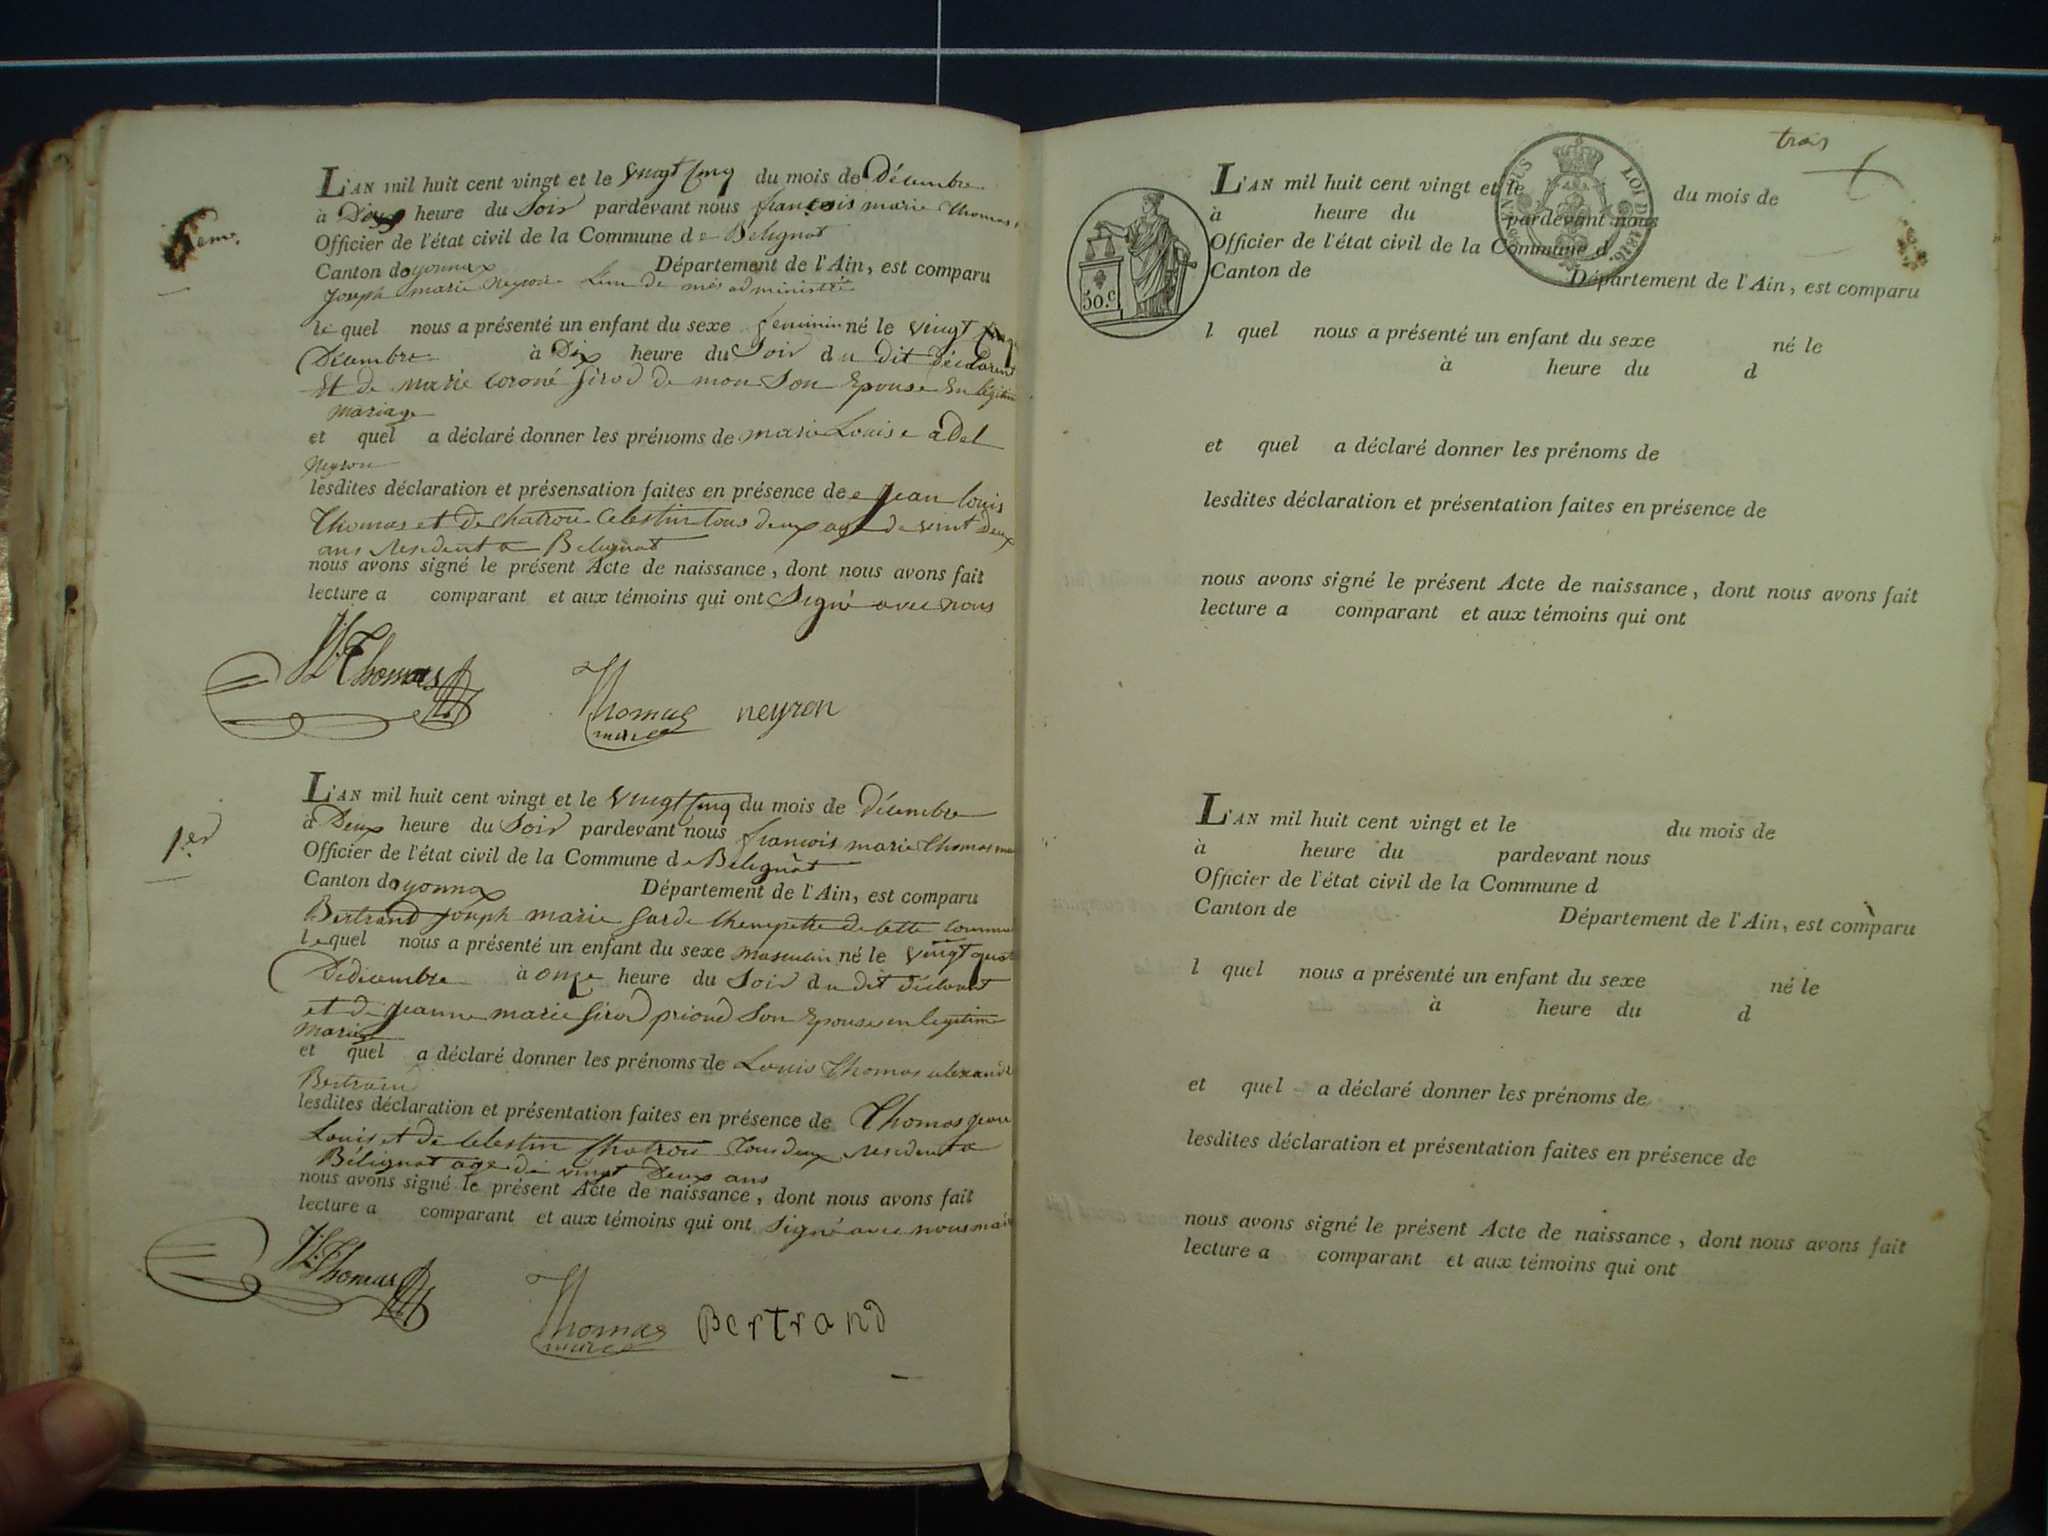 L'AN mil huit cent vingt et le vingt cinq du mois de Décembre
à Dix heure du Soir pardevant nous françois marie thomas
Officier de l'état civil de la Commune de Belignat
Canton doyonnax Département de l'Ain, est comparu
Joseph marie Neyron l'un de mes administré
le quel nous a présenté un enfant du sexe feminin né le vingt cinq
Décembre à Dix heure du Soir du dit Déclarent
Et de marie Girod de mon Son Epouse En legitime
mariage
et quel a déclaré donner les prénoms de marie Louise adel
Neyron
lesdites déclaration et présensation faites en présence de Jean louis
Thomas et de Chatron Celestin tous deux age de vint Deux
ans resident a Belignat
nous avons signé le présent Acte de naissance, dont nous avons fait
lecture a comparant et aux témoins qui ont Signé avec nous
Thomas
Thomas neyron
maire
1er
L'AN mil huit cent vingt et le vingt cinq du mois de Décembre
à Deux heure du Soir pardevant nous françois marie thomas
Officier de l'état civil de la Commune de Belignat
Canton doyonnax Département de l'Ain, est comparu
Bertrand Joseph marie garde Champettre de cette commune
le quel nous a présenté un enfant du sexe masculin né le vingt quat
Dedicembre à onze heure du Soir du dit déclarant
et de Jeanne marie Girod priond Son Epouse en legitime
mariage
et quel a déclaré donner les prénoms de Louis Thomas alexandre
Bertrand
lesdites déclaration et présentation faites en présence de Thomas Jean
Louis et de Celestin Chatron tous deux resident a
Bélignat age de vingt Deux ans
nous avons signé le présent Acte de naissance, dont nous avons fait
lecture a comparant et aux témoins qui ont signé avec nous maire
Thomas
Thomas Bertrand
maire
trois
LOI DE 1816
50.c
L'AN mil huit cent vingt et le du mois de
à heure du pardevant nous
Officier de l'état civil de la Commune d
Canton de Département de l'Ain, est comparu
l quel nous a présenté un enfant du sexe né le
à heure du d
et quel a déclaré donner les prénoms de
lesdites déclaration et présentation faites en présence de
nous avons signé le présent Acte de naissance, dont nous avons fait
lecture a comparant et aux témoins qui ont
L'AN mil huit cent vingt et le du mois de
à heure du pardevant nous
Officier de l'état civil de la Commune d
Canton de Département de l'Ain, est comparu
l quel nous a présenté un enfant du sexe né le
à heure du d
et quel a déclaré donner les prénoms de
lesdites déclaration et présentation faites en présence de
nous avons signé le présent Acte de naissance, dont nous avons fait
lecture a comparant et aux témoins qui ont